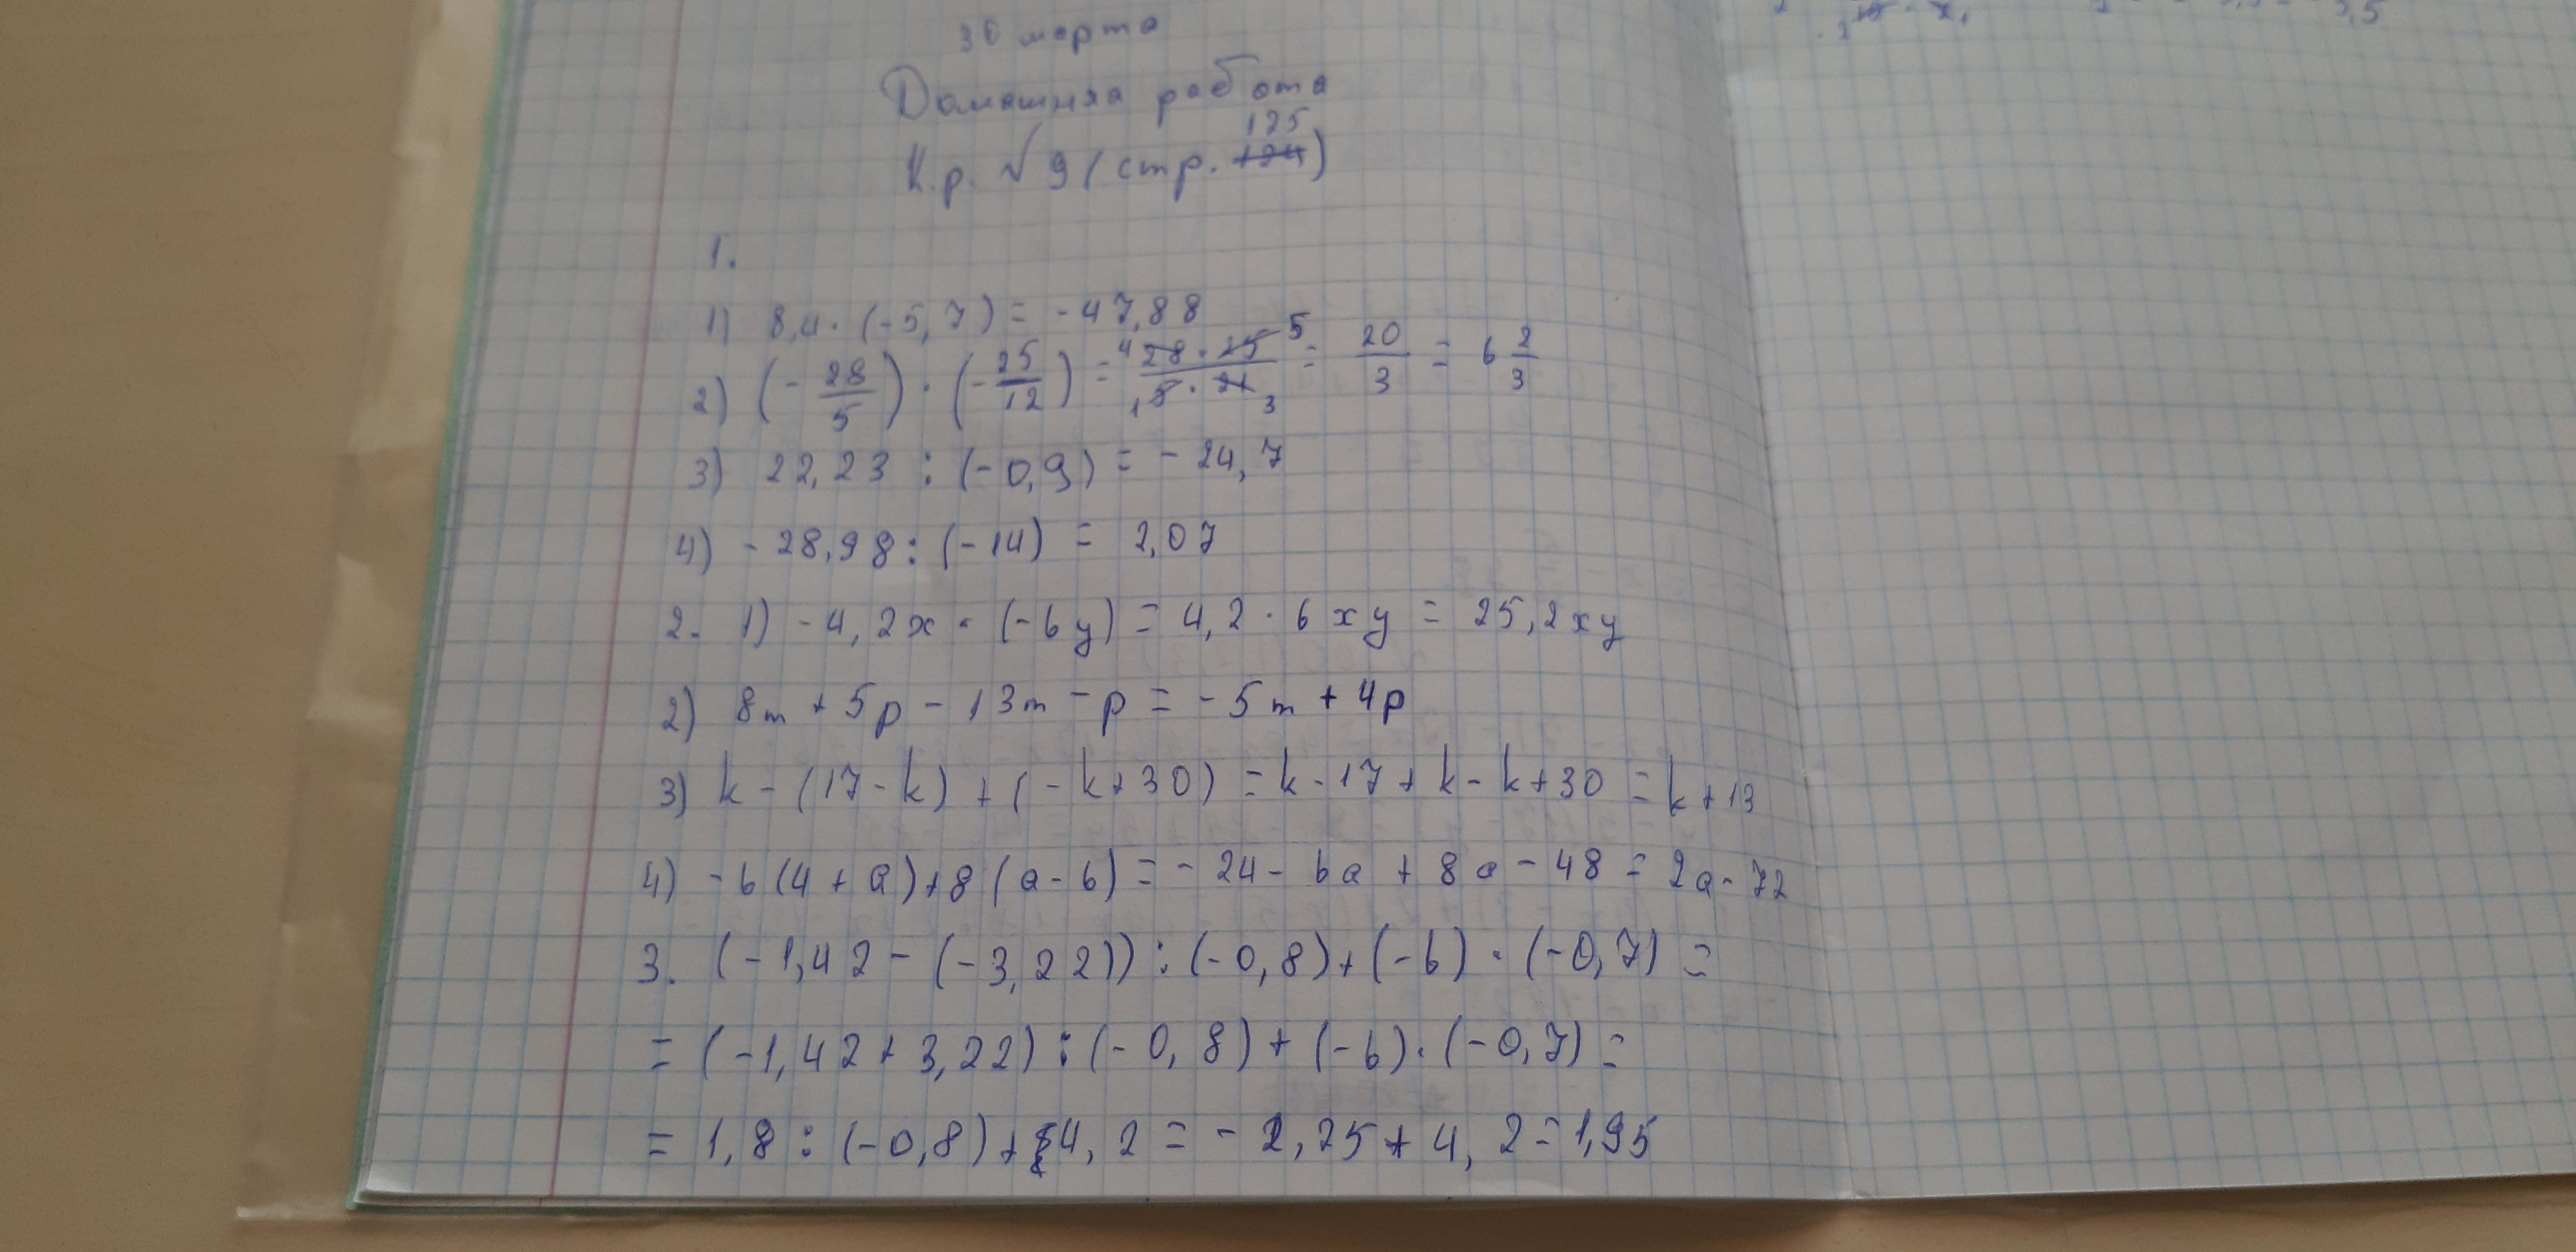 30 марта
Домашняя работа
К.р. √9 (стр. 125)
1.
1) 8,4 · (-5,7) = -47,88
2) (- 28/5) · (- 25/12) = 28 · 25 / 5 · 21 = 20/3 = 6 2/3
3) 22,23 : (-0,9) = - 24,7
4) - 28,98 : (-14) = 2,07
2. 1) - 4,2x · (-6y) = 4,2 · 6xy = 25,2xy
2) 8m + 5p - 13m - p = -5m + 4p
3) k - (17 - k) + (-k + 30) = k - 17 + k - k + 30 = k + 13
4) -6(4 + a) + 8(a - 6) = - 24 - 6a + 8a - 48 = 2a - 72
3. (-1,42 - (-3,22)) : (-0,8) + (-6) · (-0,7) =
= (-1,42 + 3,22) : (-0,8) + (-6) · (-0,7) =
= 1,8 : (-0,8) + 4,2 = - 2,25 + 4,2 = 1,95